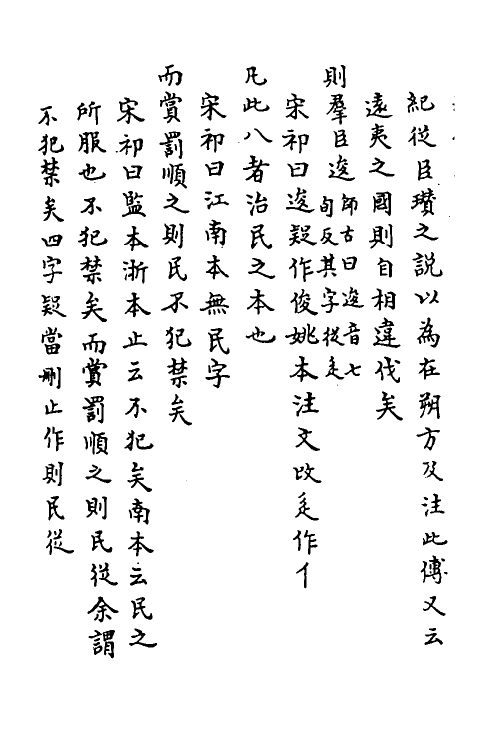 紀從臣瓉之說以為在朔方及注此傳又云
遠夷之國則自相違伐矣
則羣臣逡師古曰逡音七旬反其字從辵
宋祁曰逡疑作俊姚本注文改辵作亻
凡此八者治民之本也
宋祁曰江南本無民字
而賞罰順之則民不犯禁矣
宋祁曰監本浙本止云不犯矣南本云民之
所服也不犯禁矣而賞罰順之則民從余謂
不犯禁矣四字疑當刪止作則民從